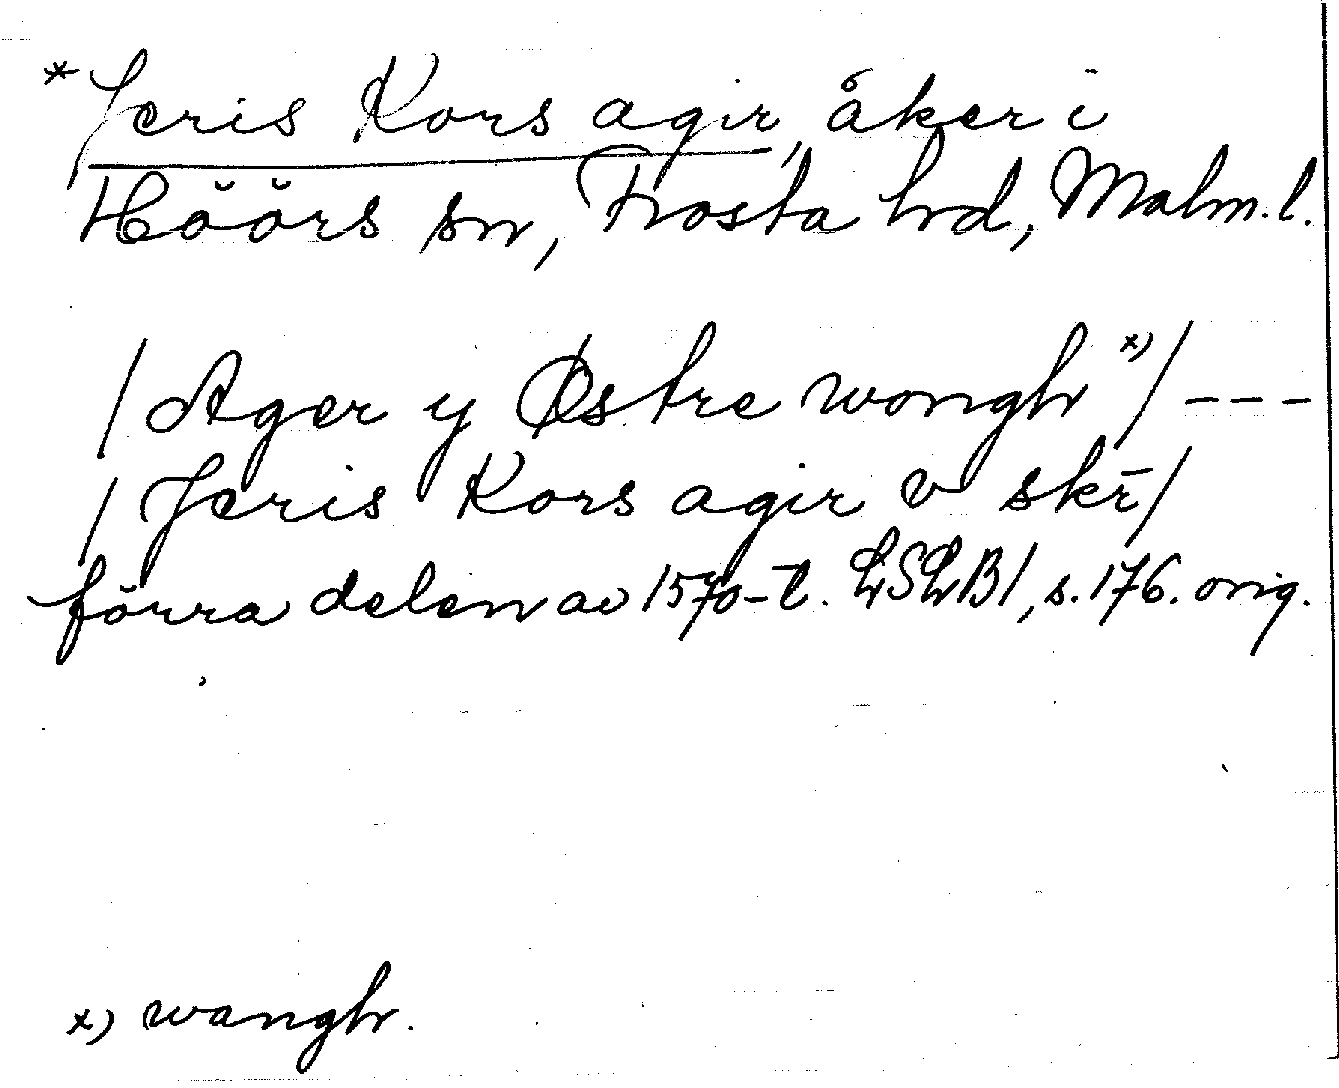 *Jeris Kors agir, åker i
Höörs sn, Frosta hd, Malm. l.
/Ager y Østre wongh x)/ ---
/Jeris Kors agir v skr̄/
förra delen av 1570-t. LSLB1, s. 176. orig.
x) wangh.